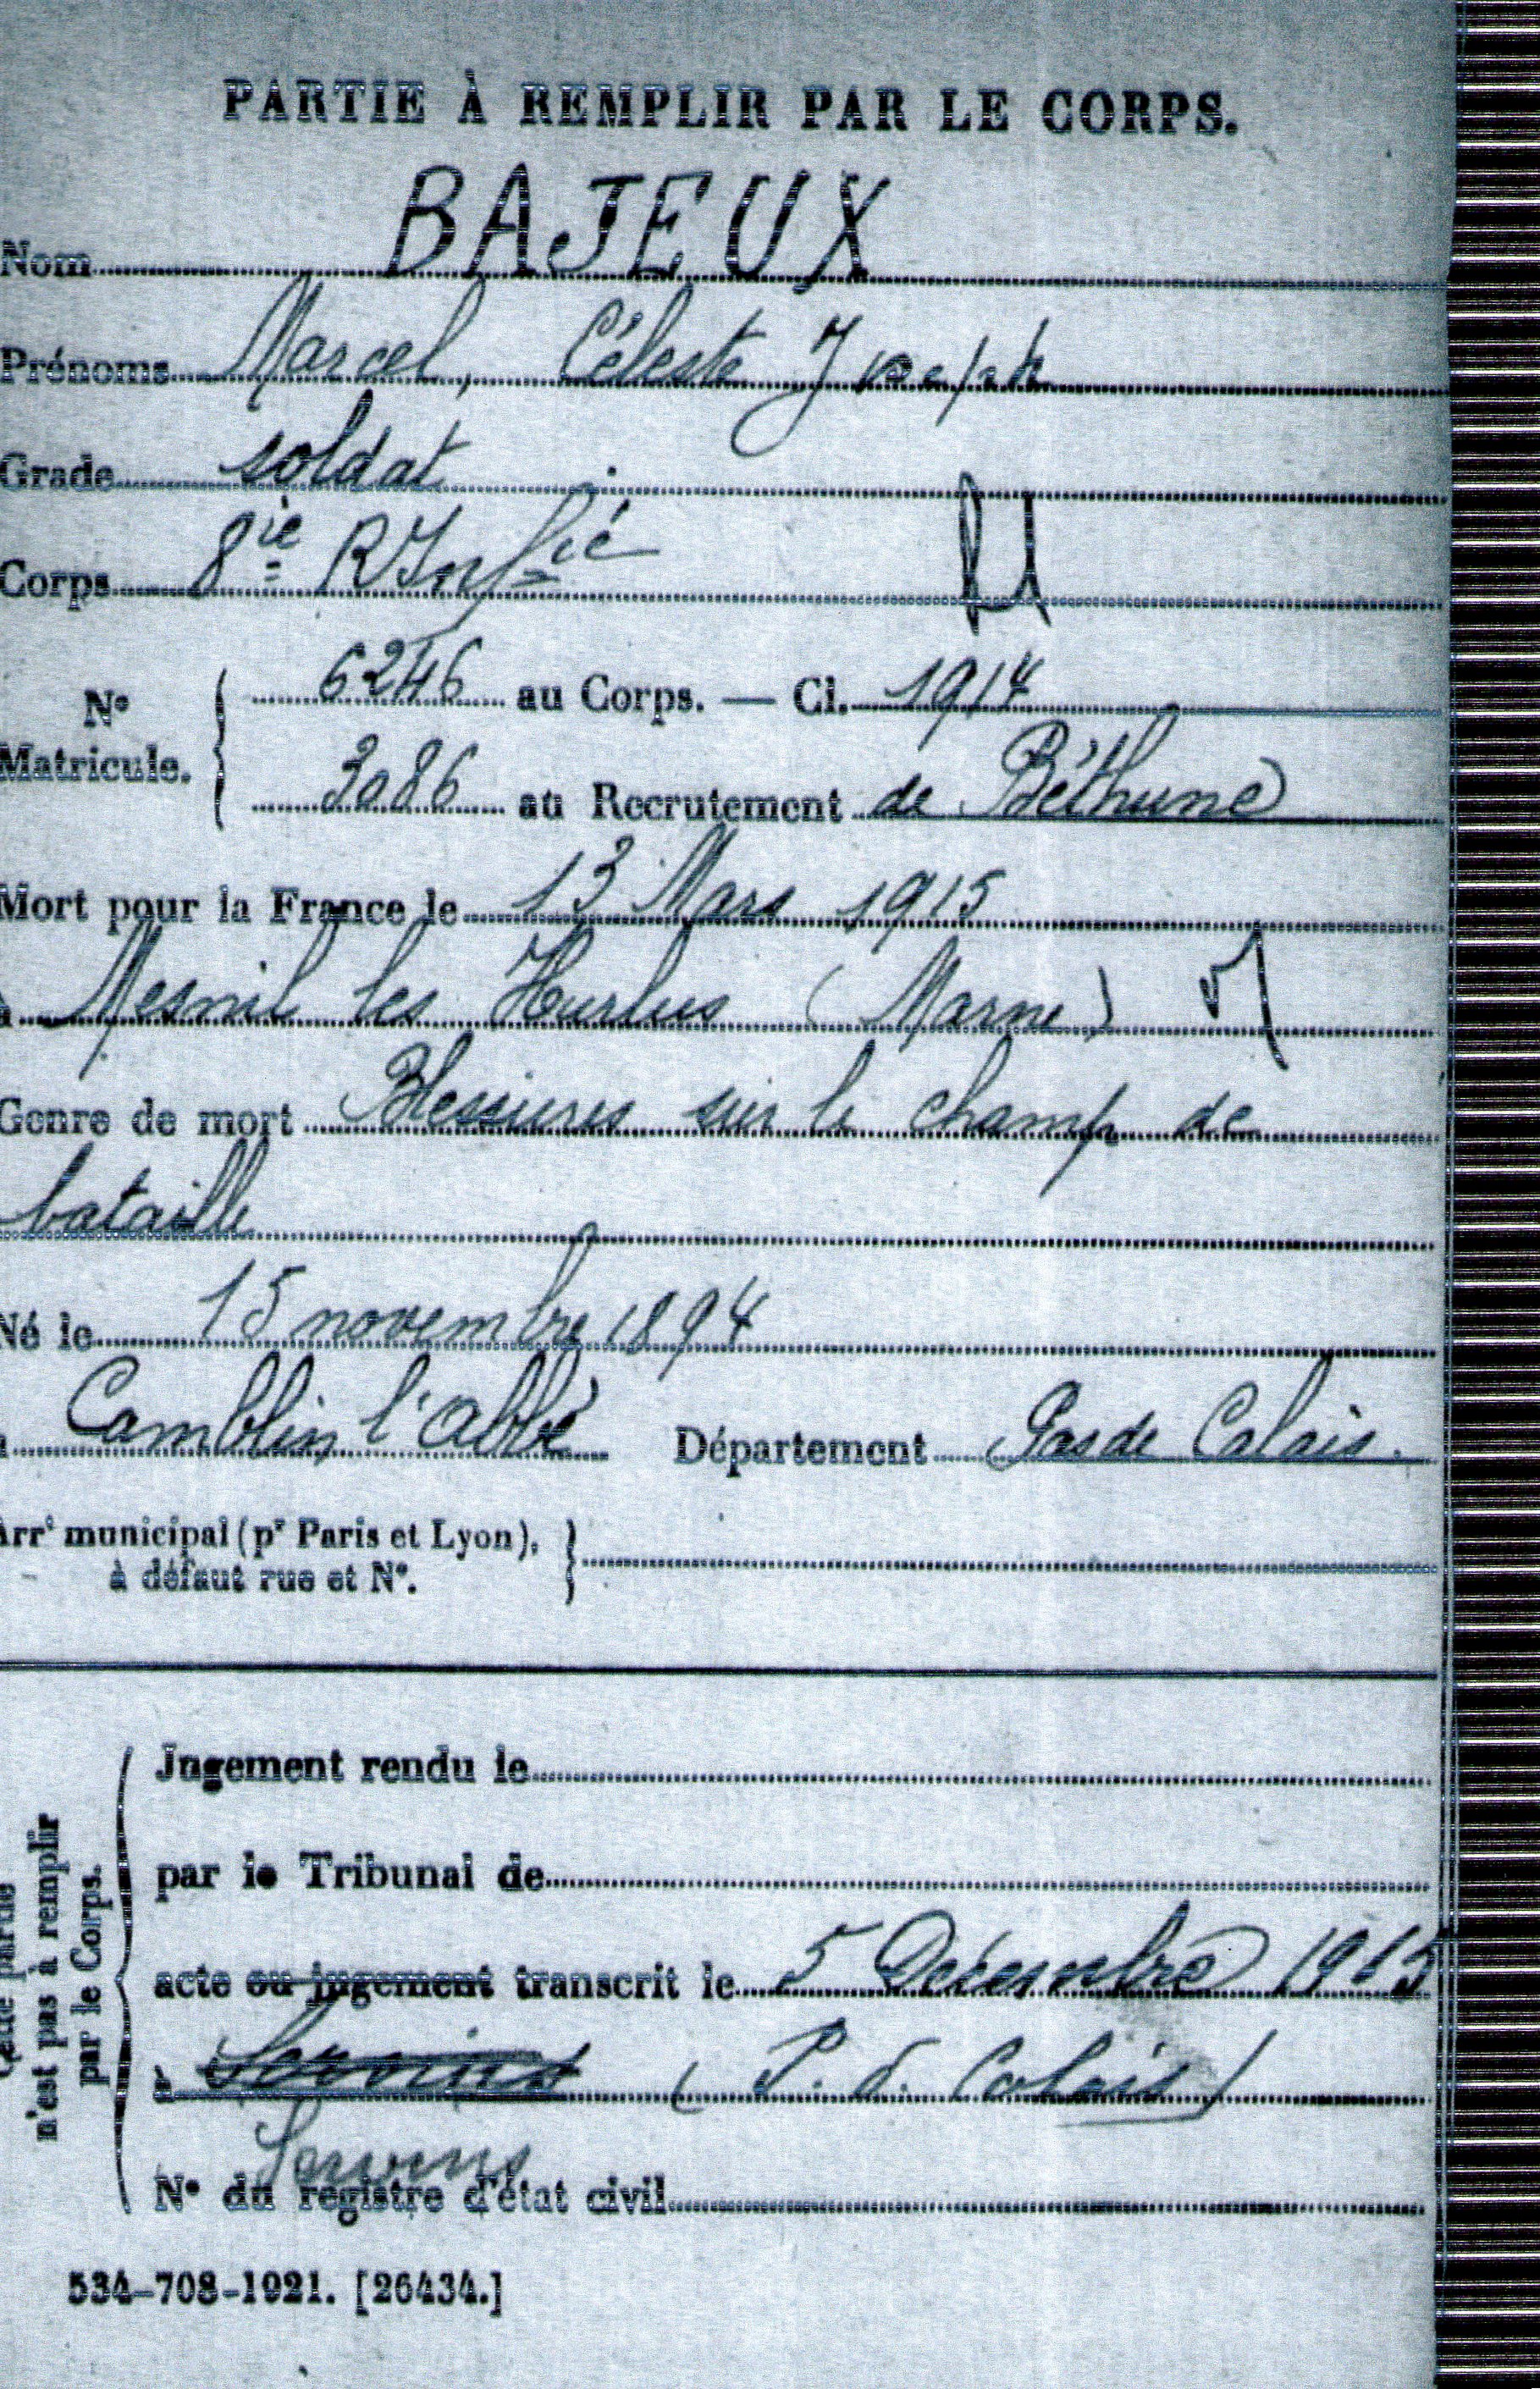 PARTIE À REMPLIR PAR LE CORPS.
Nom BAJEUX
Prénoms Marcel, Céleste Joseph
Grade soldat
Corps 8ie R Infie
No Matricule. 6246 au Corps. — Cl. 1914
3086 au Recrutement de Béthune
Mort pour la France le 13 Mars 1915
à Mesnil les Hurlus (Marne)
Genre de mort Blessures sur le champ de
bataille
Né le 15 novembre 1894
à Camblin l'abbé Département Pas de Calais.
Arrt municipal (pr Paris et Lyon),
à défaut rue et No.
Cette partie
n'est pas à remplir
par le Corps.
Jugement rendu le
par le Tribunal de
acte ou jugement transcrit le 5 Decembre 1915
à Servins (P. d. Calais)
Servins
No du registre d'état civil
534-708-1921. [26434.]